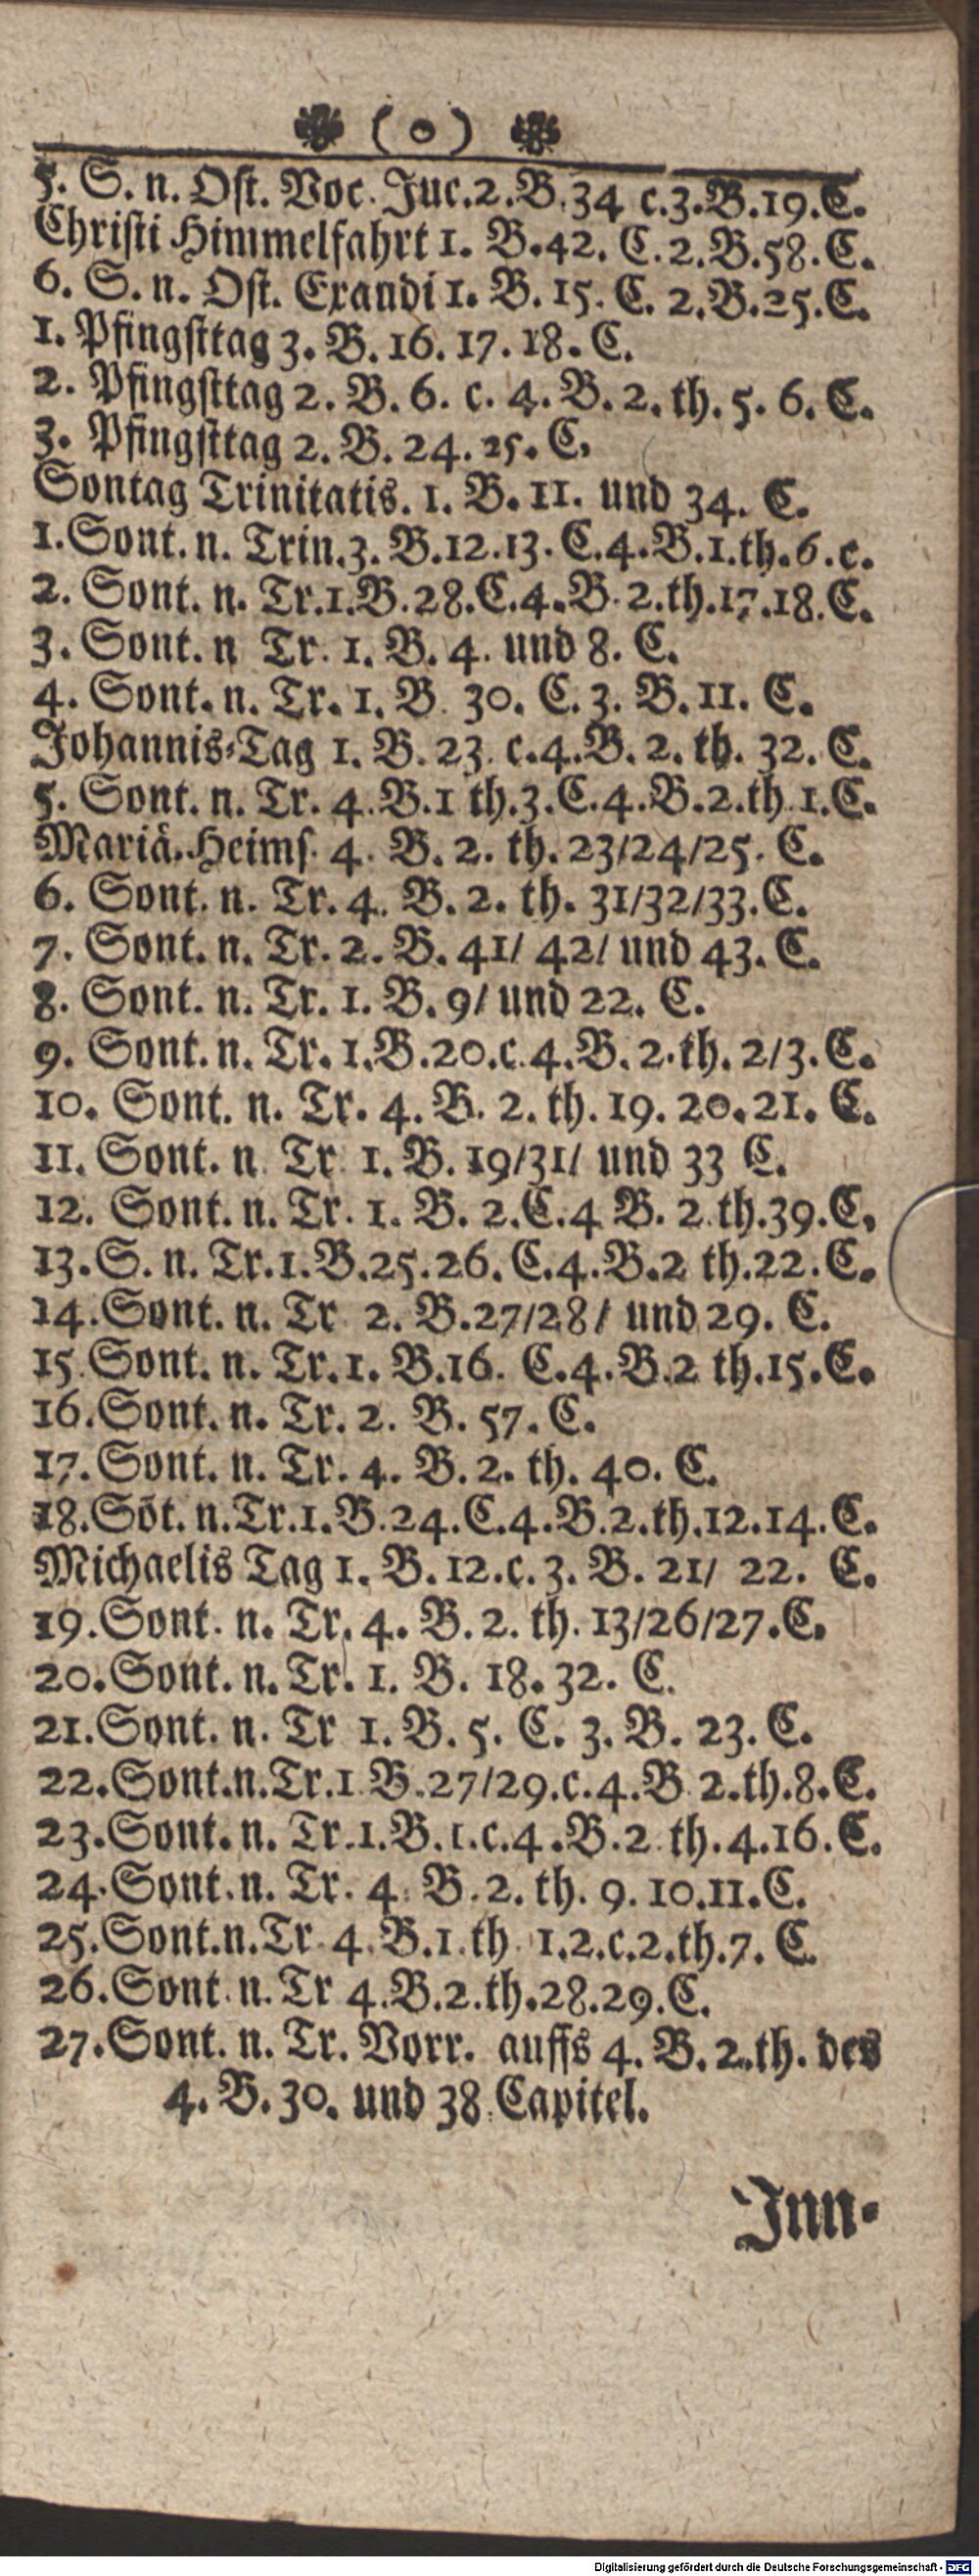 ❀ ( o ) ❀
5. S. n. Ost. Voc. Juc.2.B.34 c.3.B.19.C.
Christi Himmelfahrt 1. B.42. C.2.B.58.C.
6. S. n. Ost. Exandi 1. B. 15. C. 2.B.25.C.
1. Pfingsttag 3. B. 16. 17. 18. C.
2. Pfingsttag 2. B. 6. c. 4. B. 2. th. 5. 6. C.
3. Pfingsttag 2. B. 24. 25. C.
Sontag Trinitatis. 1. B. 11. und 34. C.
1.Sont. n. Trin.3. B.12.13. C.4.B.1.th.6.c.
2. Sont. n. Tr.1.B.28.C.4.B.2.th.17.18.C.
3. Sont. n Tr. 1. B. 4. und 8. C.
4. Sont. n. Tr. 1. B. 30. C. 3. B. 11. C.
Johannis-Tag 1. B. 23. c.4.B. 2. th. 32. C.
5. Sont. n. Tr. 4.B.1 th.3.C.4.B.2.th.1.C.
Mariä.Heims. 4. B. 2. th. 23/24/25. C.
6. Sont. n. Tr. 4. B. 2. th. 31/32/33. C.
7. Sont. n. Tr. 2. B. 41/ 42/ und 43. C.
8. Sont. n. Tr. 1. B. 9/ und 22. C.
9. Sont. n. Tr. 1.B.20.c.4.B. 2.th. 2/3. C.
10. Sont. n. Tr. 4. B. 2. th. 19. 20. 21. C.
11. Sont. n. Tr. 1. B. 19/31/ und 33 C.
12. Sont. n. Tr. 1. B. 2.C.4 B. 2.th.39.C.
13.S. n. Tr.1.B.25.26. C.4.B.2 th.22.C.
14.Sont. n. Tr 2. B.27/28/ und 29. C.
15.Sont. n. Tr.1. B.16. C.4.B.2 th.15.C.
16.Sont. n. Tr. 2. B. 57. C.
17.Sont. n. Tr. 4. B. 2. th. 40. C.
18.Sõt. n.Tr.1.B.24.C.4.B.2.th.12.14.C.
Michaelis Tag 1. B.12.c. 3. B. 21/ 22. C.
19.Sont. n. Tr. 4. B. 2. th. 13/26/27.C.
20.Sont. n. Tr. 1. B. 18. 32. C.
21.Sont. n. Tr 1. B. 5. C. 3. B. 23. C.
22.Sont.n.Tr.1 B.27/29.c.4.B 2.th.8.C.
23.Sont. n. Tr.1.B.1.c.4.B.2 th.4.16.C.
24.Sont. n. Tr. 4. B. 2. th. 9. 10.11.C.
25.Sont.n.Tr 4.B.1.th 1.2.c.2.th.7. C.
26.Sont. n. Tr 4.B.2.th.28.29.C.
27.Sont. n. Tr. Vorr. auffs 4. B. 2.th. des
4. B. 30. und 38.Capitel.
Jnn-
Digitalisierung gefördert durch die Deutsche Forschungsgemeinschaft - DFG